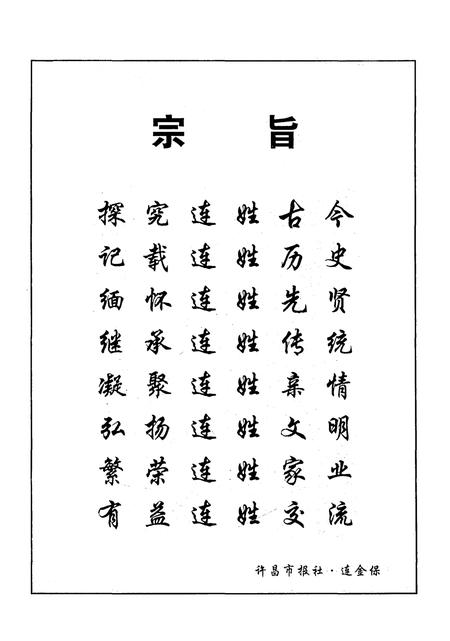 宗旨
探究连姓古今
记载连姓历史
缅怀连姓先贤
继承连姓传统
凝聚连姓亲情
弘扬连姓文明
繁荣连姓家业
有益连姓交流
许昌市报社·连金保